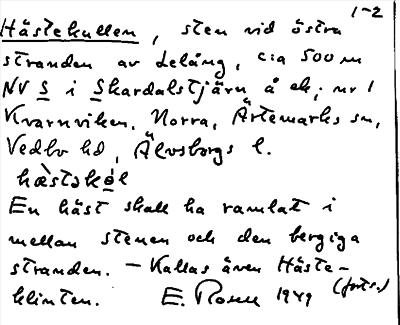 1-2
Hästekullen, sten vid östra
stranden av Lelång, c:a 500 m
NV S i Skardalstjärn å ek; nr 1
Kvarnviken, Norra, Ärtemarks sn,
Vedbo hd, Älvsborgs l.
En häst skall ha ramlat i
mellan stenen och den bergiga
stranden. – Kallas även Häste-
klinten. E. Rosell 1949 (forts.)